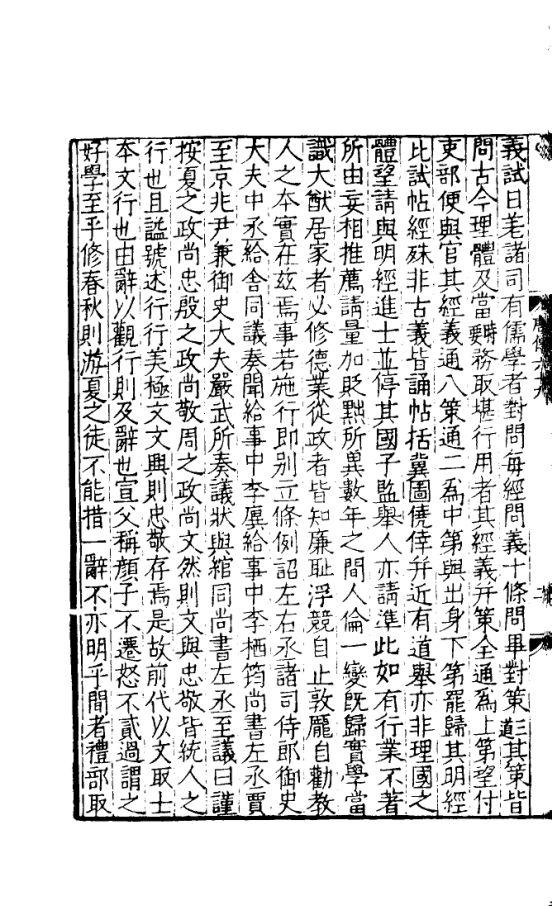 義試日差諸司有儒學者對問每經問義十條問畢對策三道其策皆
問古今理體及當時要務取堪行用者其經義并策全通爲上第望付
吏部便與官其經義通八策通二爲中第與出身下第罷歸其明經
比試帖經殊非古義皆誦帖括冀圖僥倖并近有道舉亦非理國之
體望請與明經進士並停其國子監舉人亦請準此如有行業不著
所由妄相推薦請量加貶黜所異數年之間人倫一變旣歸實學當
識大猷居家者必修德業從政者皆知廉耻浮競自止敦龐自勸教
人之本實在兹焉事若施行即别立條例詔左右丞諸司侍郎御史
大夫中丞給舍同議奏聞給事中李廙給事中李栖筠尚書左丞賈
至京兆尹兼御史大夫嚴武所奏議狀與綰同尚書左丞至議曰謹
按夏之政尚忠殷之政尚敬周之政尚文然則文與忠敬皆統人之
行也且謚號述行行美極文文興則忠敬存焉是故前代以文取士
本文行也由辭以觀行則及辭也宣父稱顔子不遷怒不貳過謂之
好學至乎修春秋則游夏之徒不能措一辭不亦明乎間者禮部取